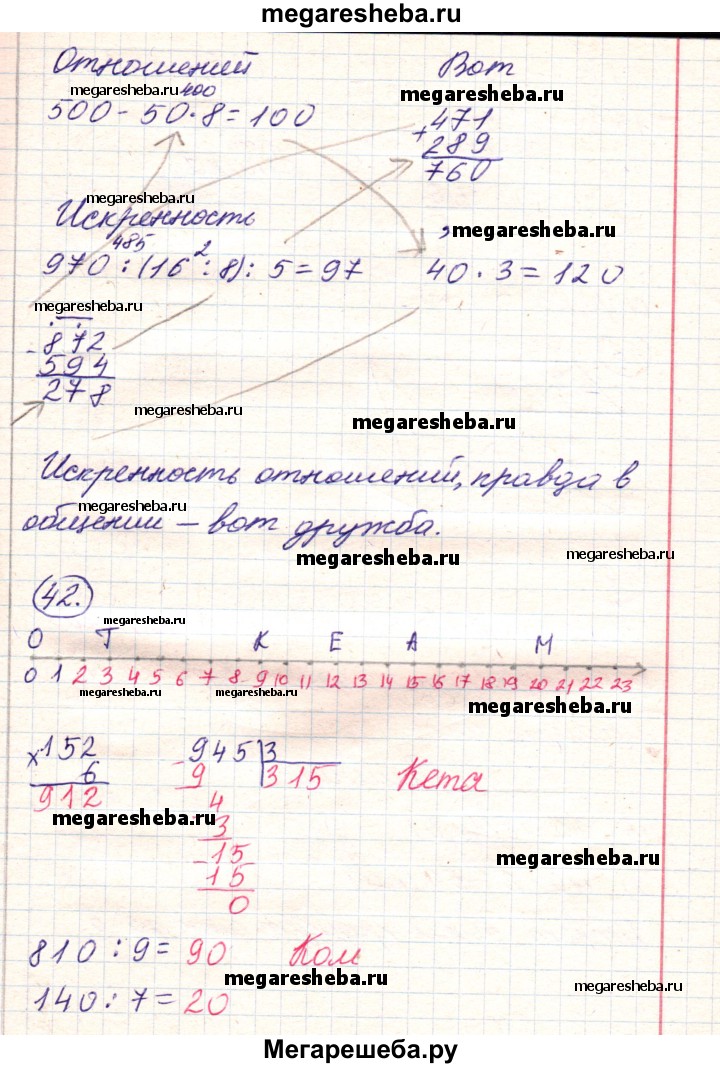 megaresheba.ru
Отношений Вот
megaresheba.ru 400 megaresheba.ru
500 - 50 · 8 = 100 + 471
289
760
megaresheba.ru
Искренность
, megaresheba.ru
485 2
970 : (16 : 8) : 5 = 97 40 · 3 = 120
megaresheba.ru
- 872
594
278
megaresheba.ru
megaresheba.ru
Искренность отношений, правда в
megaresheba.ru
общении – вот дружба.
megaresheba.ru megaresheba.ru
42.
megaresheba.ru
О Т К Е А М
0 1 2 3 4 5 6 7 8 9 10 11 12 13 14 15 16 17 18 19 20 21 22 23
megaresheba.ru megaresheba.ru megaresheba.ru
× 152 - 945 | 3
6 9 315 Кета
912 4
megaresheba.ru
3
- 15 megaresheba.ru
15
0
810 : 9 = 90 Ком
megaresheba.ru megaresheba.ru
140 : 7 = 20
Мегарешеба.ру